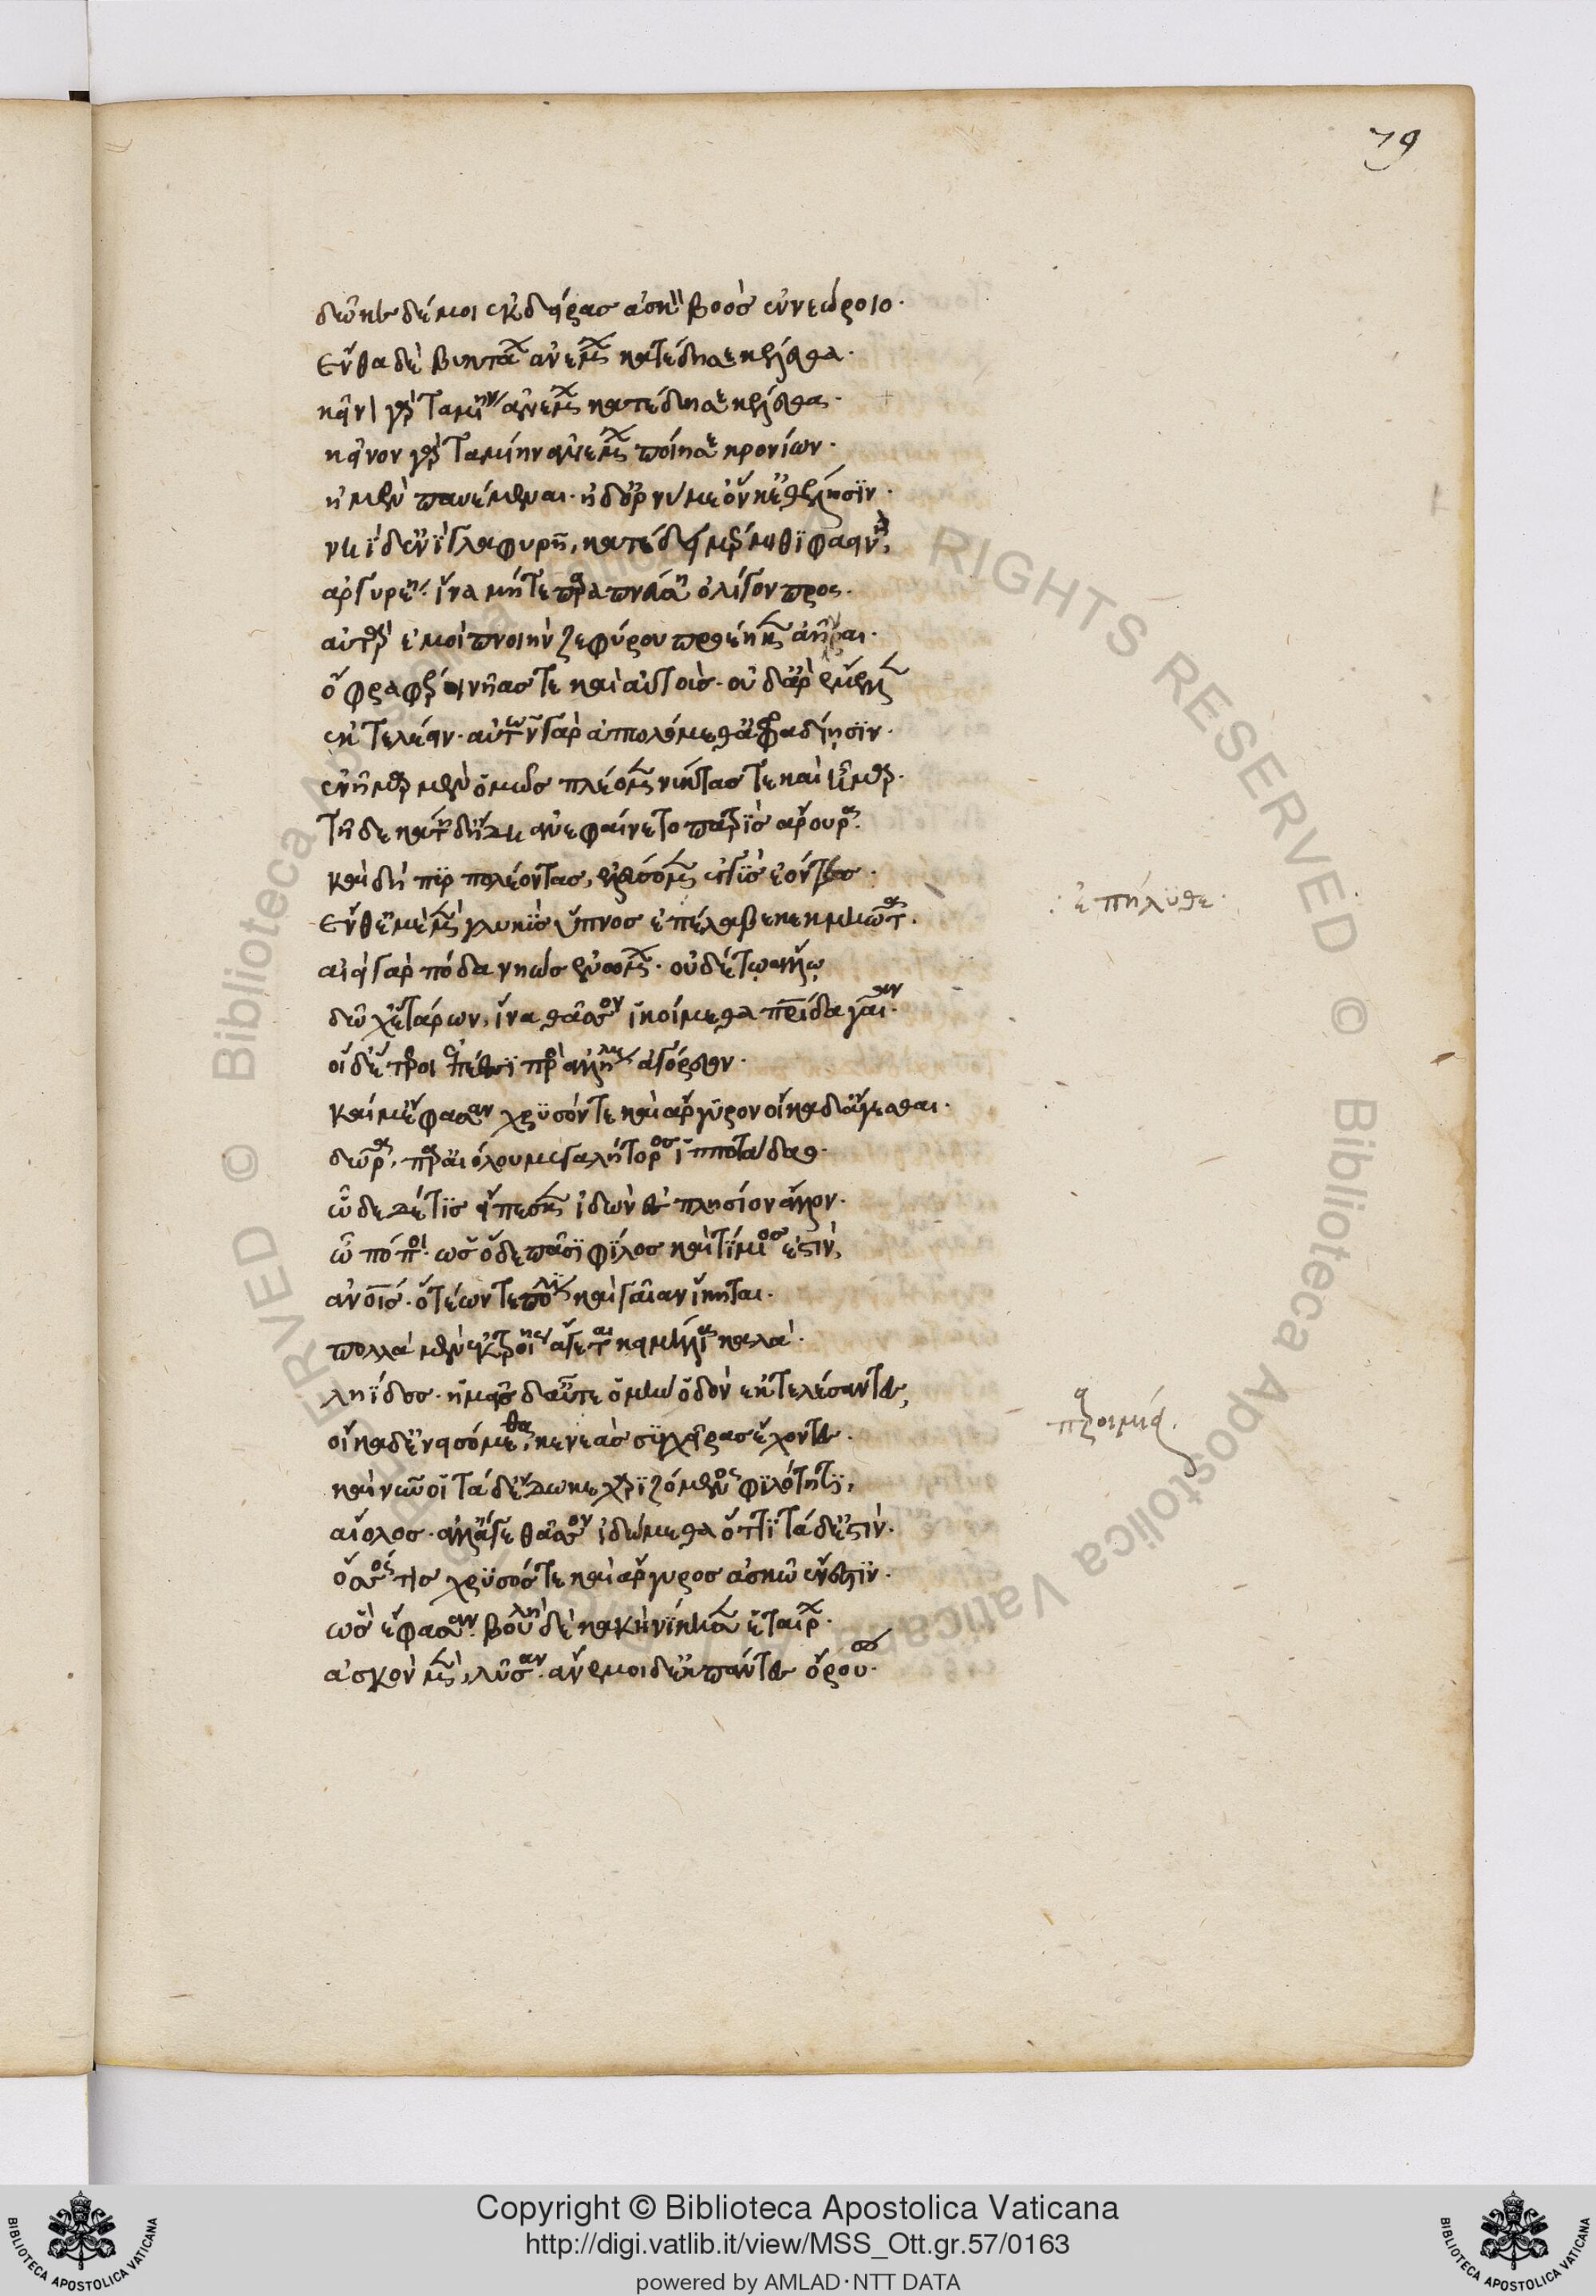 δῶκε δέ μοι ἐκδείρας ἀσκὸν βοὸς ἐννεώροιο·
ἔνθα δὲ βυκτάων ἀνέμων κατέδησε κέλευθα·
κεῖνον γὰρ ταμίην ἀνέμων κατέδησε κέλευθα·
κεῖνον γὰρ ταμίην ἀνέμων ποίησε κρονίων·
ἠμὲν παυέμεναι· ἠδ' ὀρνύμεν ὅν κ' ἐθέλησϊν·
νηῒ δ' ἐνῒ γλαφυρῇ, κατέδει μέρμιθϊ φαεινῇ,
ἀργυρέῃ· ἵνα μήτε παραπνεύσῃ ὀλίγον περ·
αὐτὰρ ἐμοὶ πνοιὴν ζεφύρου προέηκεν ἀῆναι·
ὄφρα φέροι νῆας τε καὶ αὐτούς· οὐδ' ἄρ' ἔμελλεν
ἐκτελέειν· αὐτῶν γὰρ ἀπολόμεθ' ἀφραδίῃσϊν·
ἐννῆμαρ μὲν ὁμῶς πλέομεν νύκτας τε καὶ ἦμαρ·
τῇ δεκάτῃ δ' ἤδη ἀνεφαίνετο πατρὶς ἄρουρα·
καὶ δὴ πϋρπολέοντας, ἐλεύσσομεν ἐγγὺς ἐόντας·
ἔνθ' ἐμὲ μὲν γλυκϋς ὕπνος ἐπέλαβε κεκμηῶτα· ἐπήλϋθε·
αἰεὶ γὰρ πόδα νηὸς ἐνώμων· οὐδέ τῳ ἄλλῳ
δῶχ' ἑτάρων, ἵνα θᾶσσον ἱκοίμεθα πατρίδα γαῖαν·
οἱ δ' ἕταροι ἐπέεσσϊ πρὸς ἀλλήλους ἀγόρευον·
καί μ' ἔφασαν χρϋσόν τε καὶ ἄργϋρον οἴκαδ' ἄγεσθαι·
δῶρα, παρ' αἰόλου μεγαλήτορος ἱπποτάδαο·
ὧδε δέ τϊς εἴπεσκεν ἰδὼν ἐς πλησίον ἄλλον·
ὢ πόποι· ὡς ὅδε πᾶσϊ φίλος καὶ τίμιος ἐστὶν,
ἀνθρώποις· ὅτεών τε πόλιν καὶ γαῖαν ἵκηται·
πολλὰ μὲν ἐκ τροίης ἄγεται κειμήλια καλὰ·
ληΐδος· ἡμεῖς δ' αὖτε ὁμὴν ὁδὸν ἐκτελέσαντες, προιμιά
οἴκαδε νεισόμεθα, κενεὰς σὺν χεῖρας ἔχοντες·
καὶ νῦν οἱ τάδ' ἔδωκε χαρϊζόμενος φιλότητϊ,
αἴολος· ἀλλ' ἄγε θᾶσσον ἰδώμεθα ὅττϊ τάδ' ἐστὶν·
ὅσσος τὶς χρϋσός τε καὶ ἄργυρος ἀσκῷ ἔνεστϊν·
ὣς ἔφασαν· βουλὴ δὲ κακὴ νίκησεν ἑταίρων·
ἀσκὸν μὲν, λῦσαν· ἄνεμοι δ' ἐκ πάντες ὄρουσαν·
79
Copyright © Biblioteca Apostolica Vaticana
http://digi.vatlib.it/view/MSS_Ott.gr.57/0163
powered by AMLAD·NTT DATA